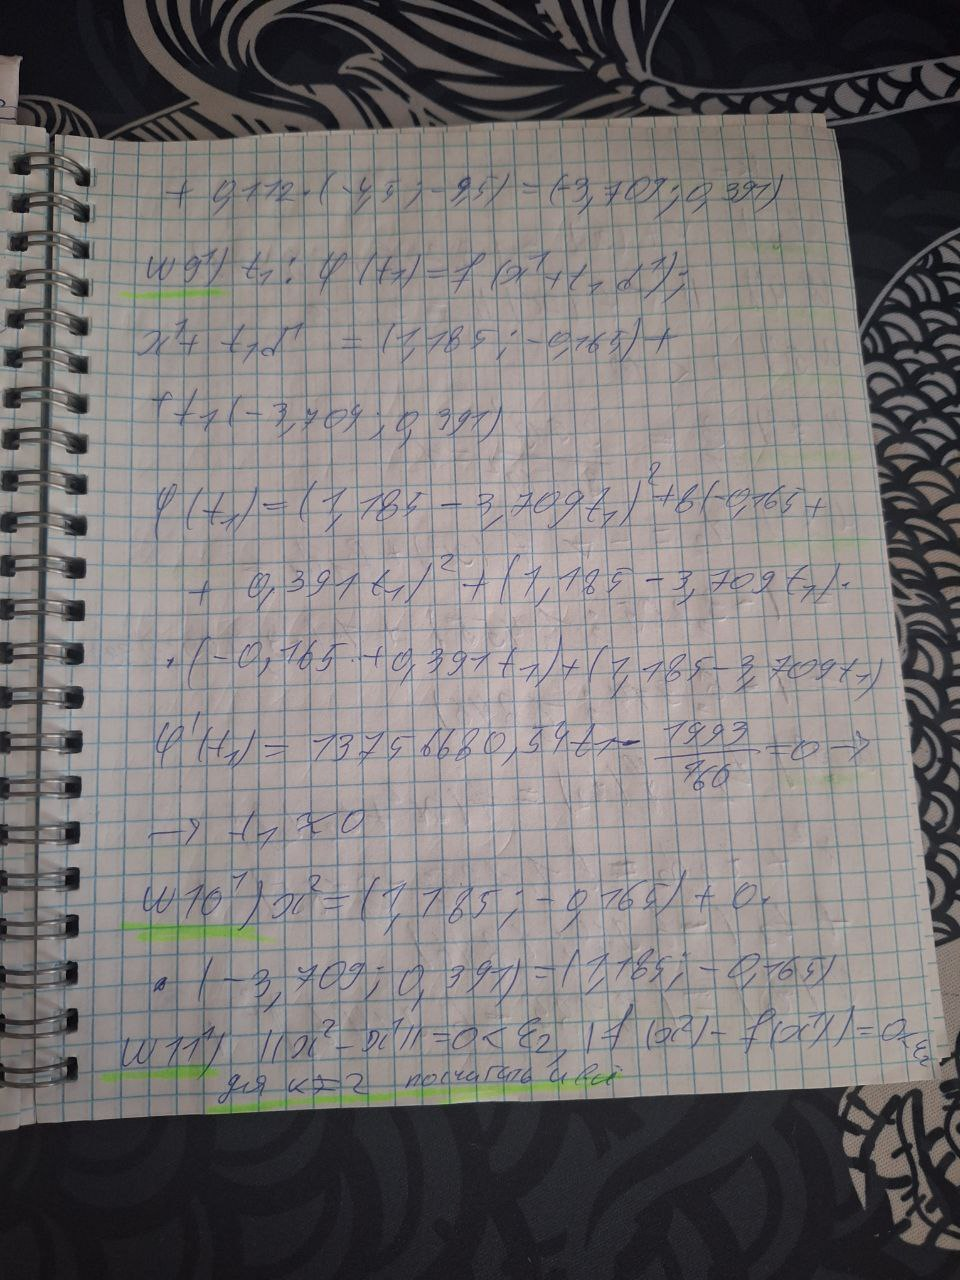 + 0,112·(-4,5; -9,5) = (-3,709; 0,391)
ш9¹) t₁: φ(t₁) = f(x¹+t₁p¹);
x¹+t₁p¹ = (1,185; -0,165) +
+t₁(-3,709; 0,391)
φ(t₁) = (1,185 - 3,709t₁)² + 8(-0,165 +
+ 0,391t₁)² + (1,185 - 3,709t₁)·
·(-0,165 + 0,391t₁) + (1,185 - 3,709t₁)
φ'(t₁) = = 0 →
→ t₁ ≈ 0
ш10¹) x² = (1,185; -0,165) + 0·
·(-3,709; 0,391) = (1,185; -0,165)
ш11¹) ||x² - x¹|| = 0 < ε₂, |f(x²) - f(x¹)| = 0 < ε₂
для к=2 посчитать и всё